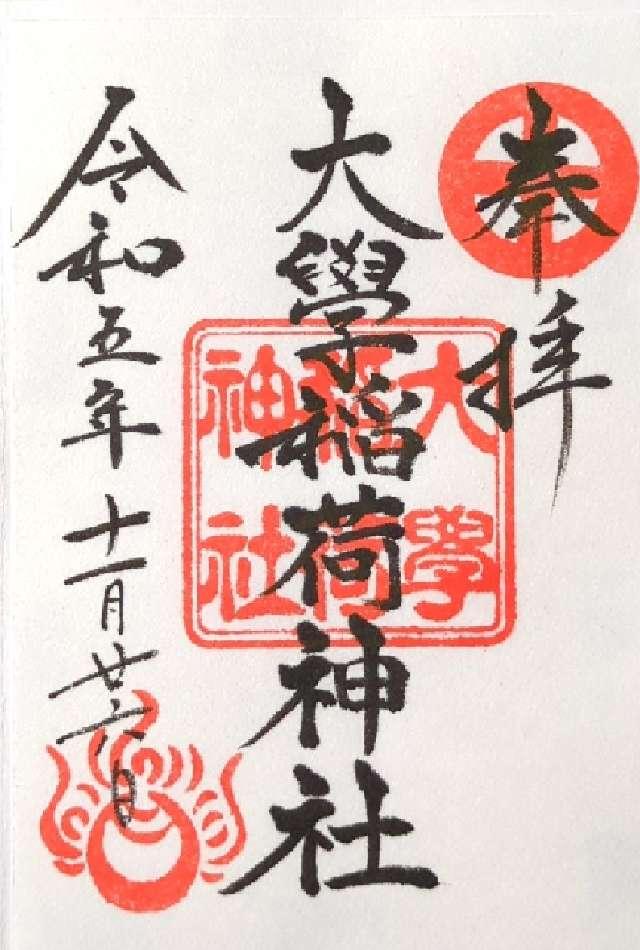 奉拝
大學稲荷神社
令和五年十一月廿六日
大學
稲荷
神社